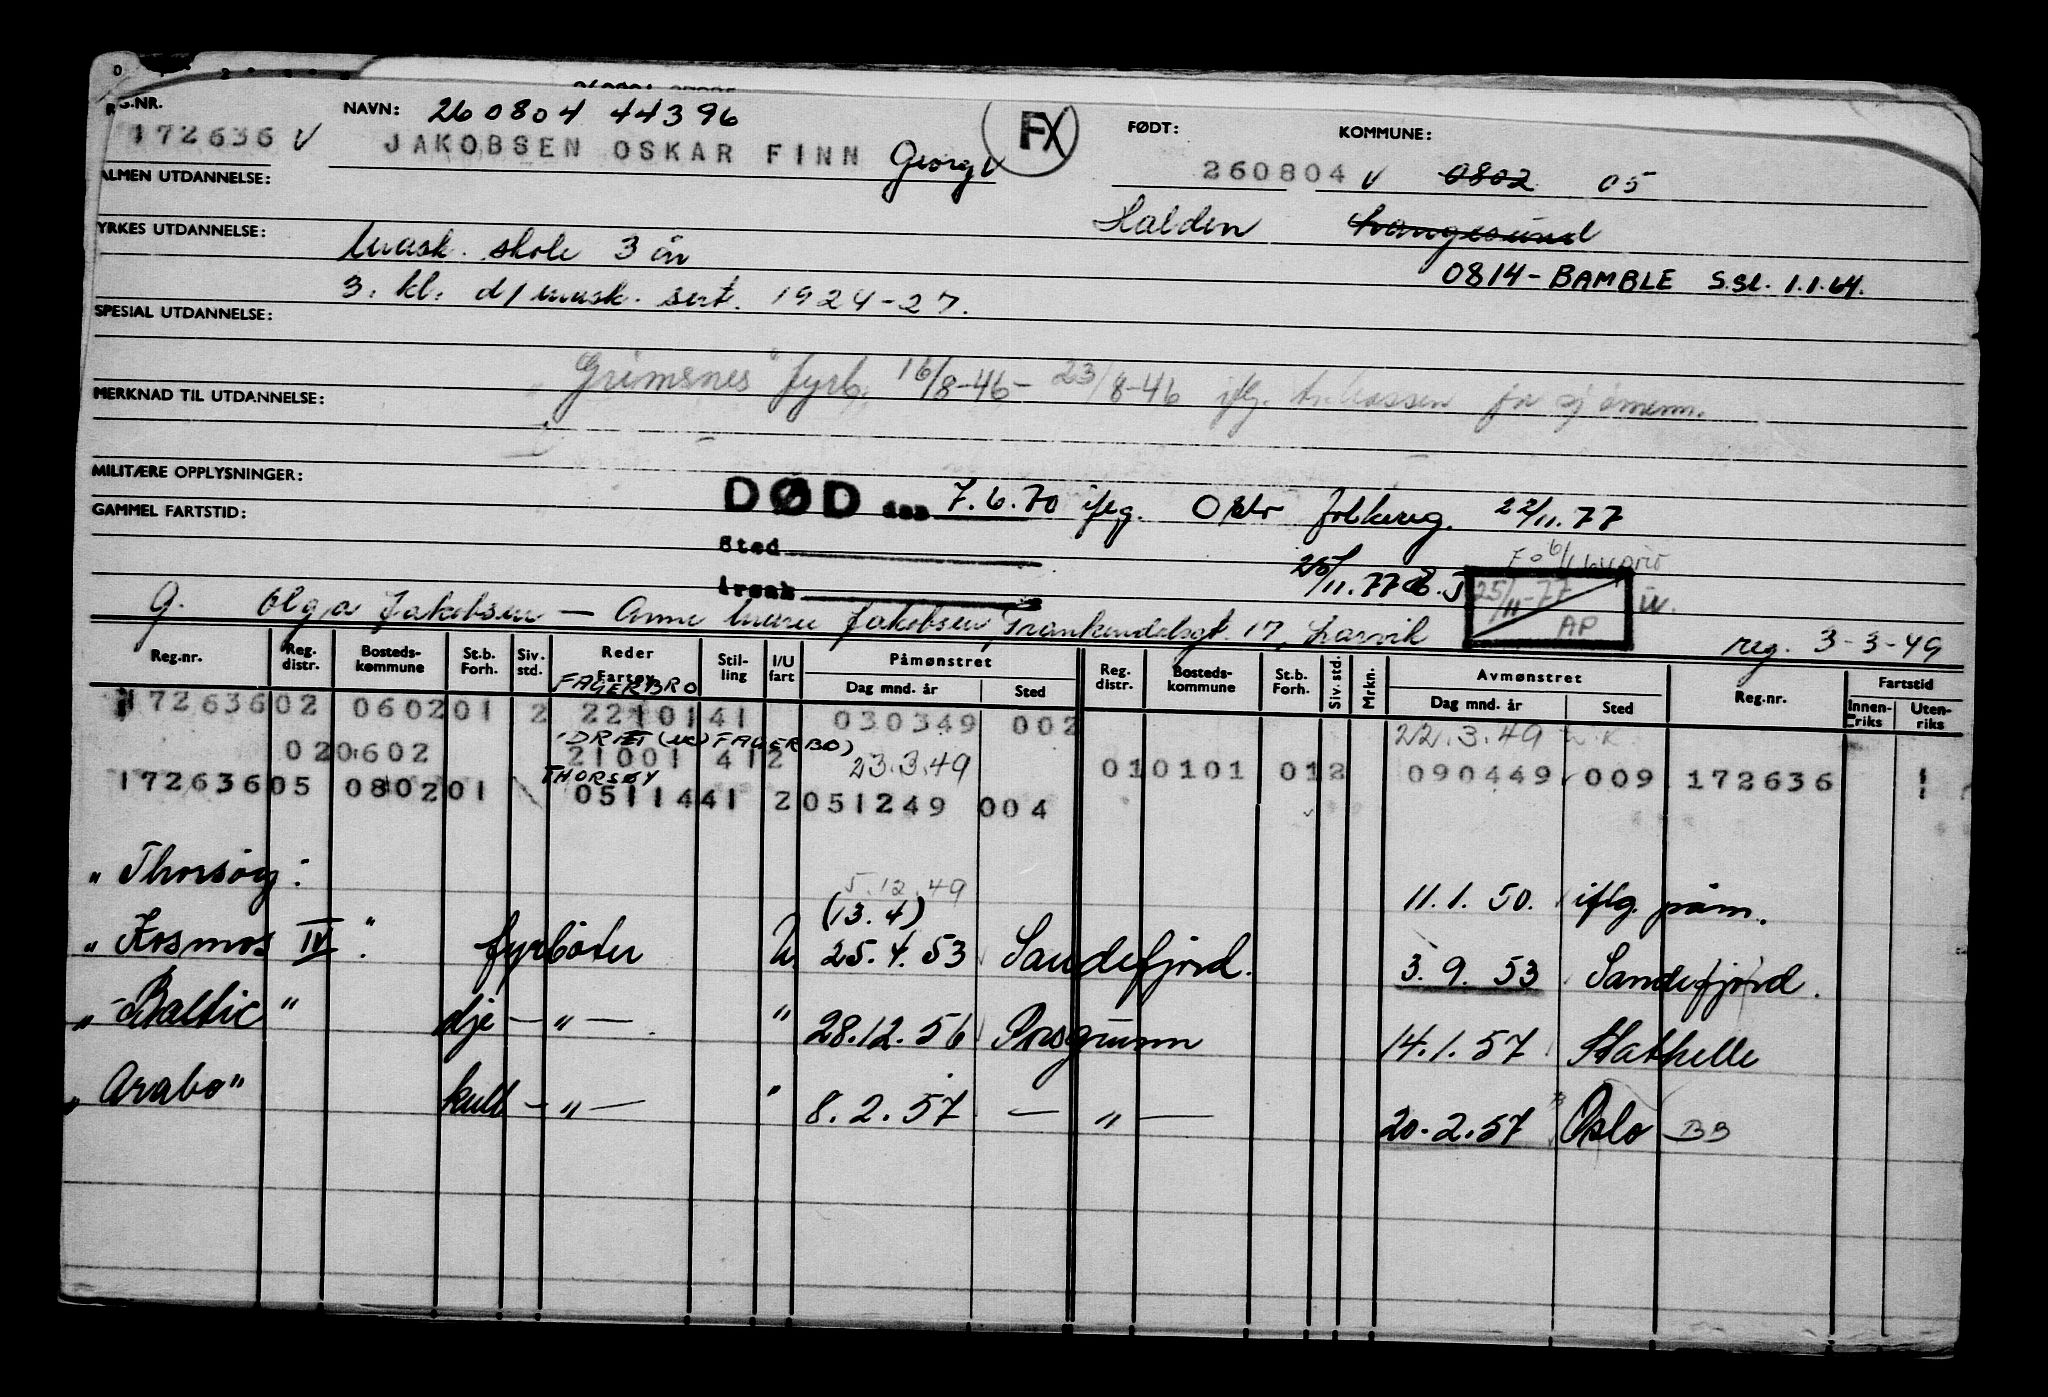 REG.NR. NAVN: 260804 44396 FX FØDT: KOMMUNE:
172636 V JAKOBSEN OSKAR FINN Georg V 260804 V 0802 05
ALMEN UTDANNELSE:
Halden Langesund
YRKES UTDANNELSE: Mask. skole 3 år
0814 - BAMBLE S.sl. 1.1.64.
3. kl. d/mask. sert. 1924-27.
SPESIAL UTDANNELSE:
"Grimsnes" fyrb. 16/8-46 - 23/8-46 iflg. for sjømenn.
MERKNAD TIL UTDANNELSE:
MILITÆRE OPPLYSNINGER:
DØD den 7.6.70 iflg. Oslo folkereg. 22/11.77
GAMMEL FARTSTID:
Sted
25/11.77
25/11-77
Årsak
AP
G. Olga Jakobsen — Anne Marie Jakobsen, Frankendalsgt. 17, Larvik
reg. 3-3-49
Reg.nr. Reg. distr. Bosteds-kommune St.b. Forh. Siv. std. Reder Fartøy Stil-ling I/U fart Påmønstret Dag mnd. år Sted Reg. distr. Bosteds-kommune St.b. Forh. Siv. std. Mrkn. Avmønstret Dag mnd. år Sted Reg.nr. Fartstid Innen-riks Uten-riks
FAGERBRO
172636 02 0602 01 2 22101 41 030349 002 22.3.49
IDRÆT (ex FAGERBRO)
02 0602 21001 41 2 23.3.49 01 0101 01 2 090449 009 172636 1
THORSØY
172636 05 0802 01 05114 41 2 051249 004 1
5.12.49
"Thorsøy: 11.1.50. iflg. påm.
(13.4)
"Kosmos IV". fyrbøter U. 25.4.53 Sandefjord. 3.9.53 Sandefjord.
"Baltic" dje — " — . " 28.12.56 Porsgrunn 14.1.57 Stathelle
"Arabo" kull — " — " 8.2.57 — " — 20.2.57 Oslo BB